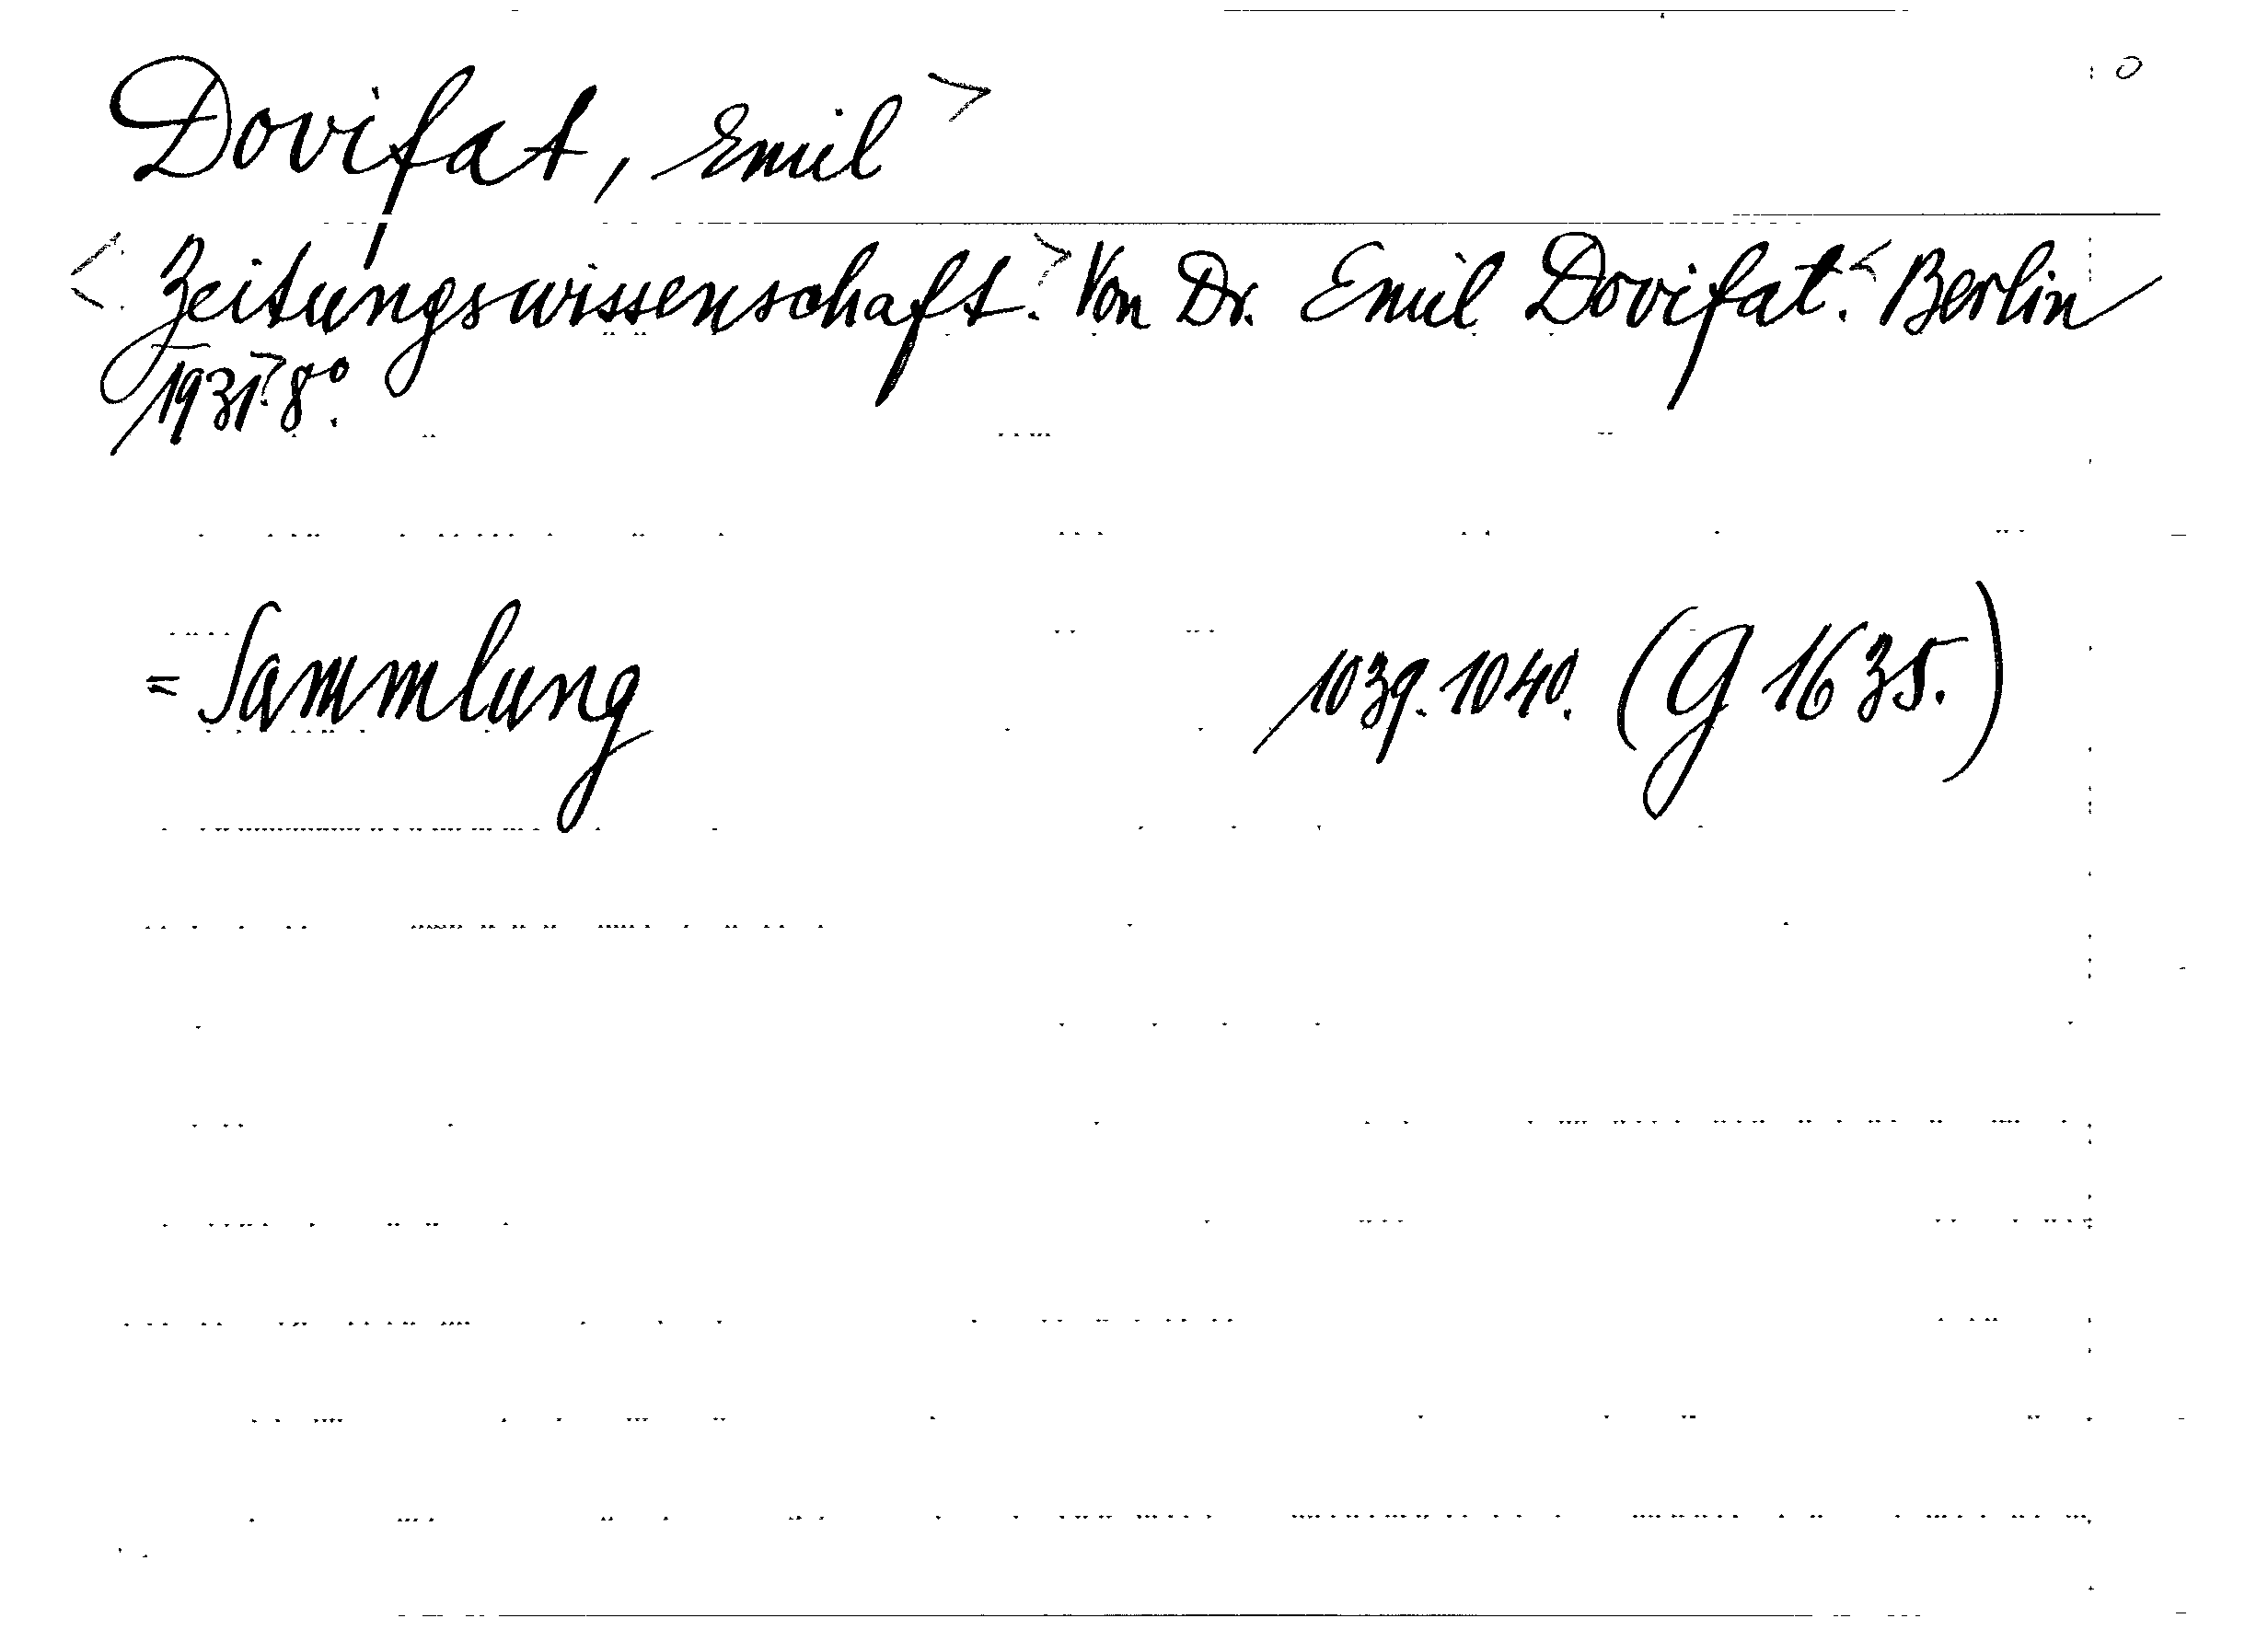 Dovifat, Emil >
< Zeitungswissenschaft. > Von Dr. Emil Dovifat. < Berlin
1931. > 8°.
= Sammlung 1039. 1040. (G 1635.)